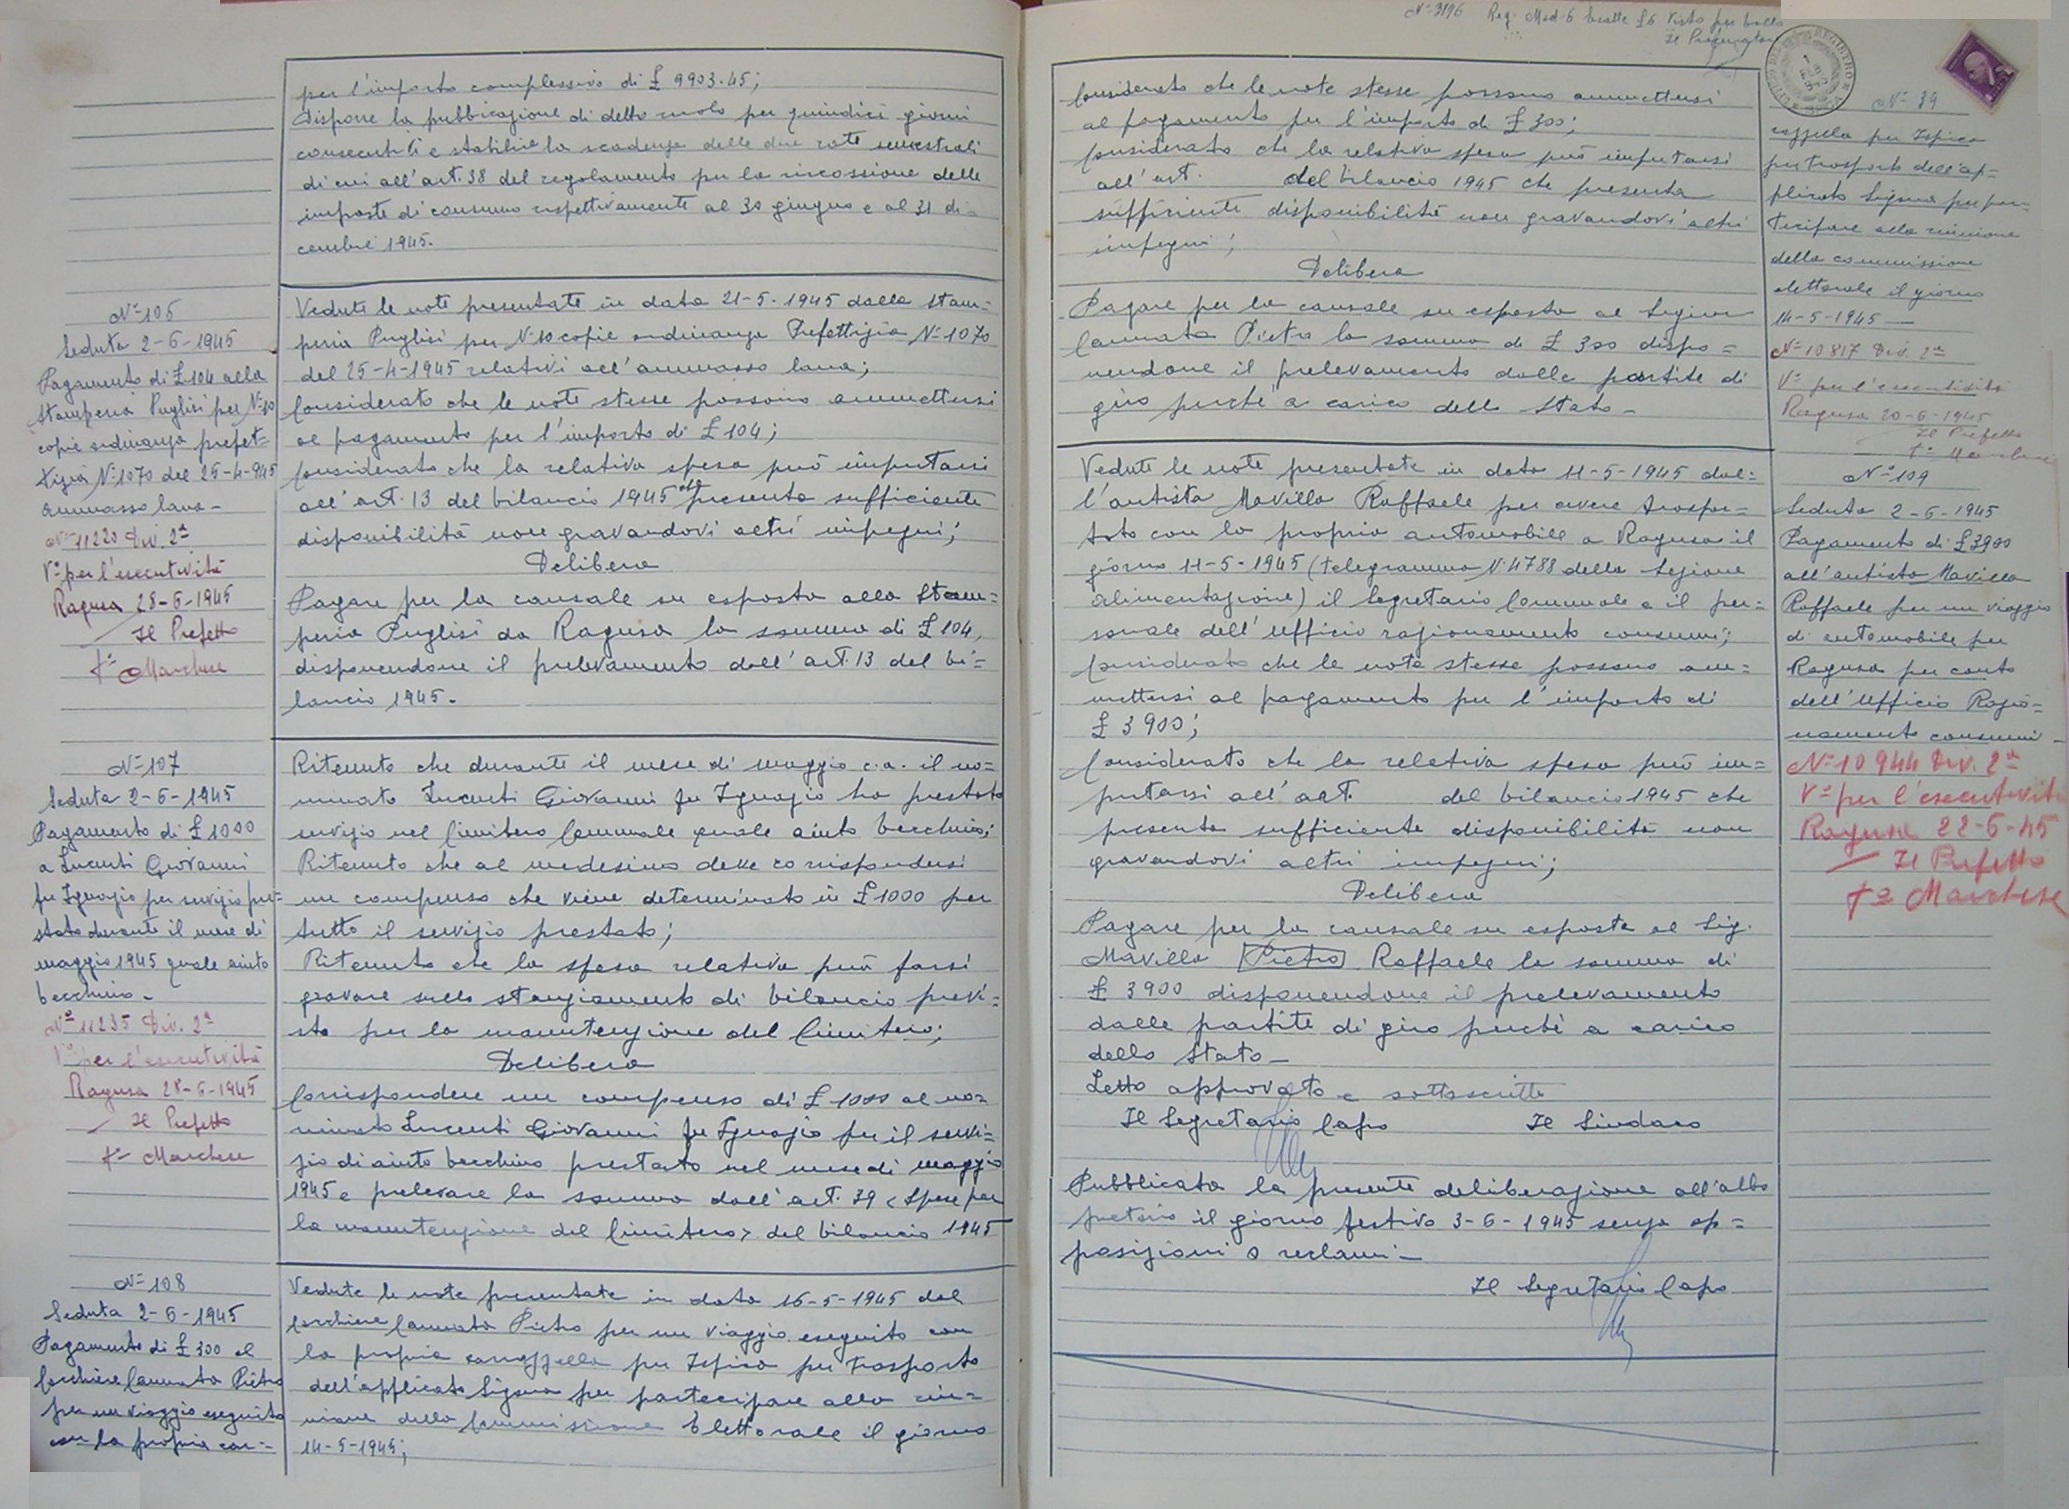 per l'importo complessivo di £ 9903.45;
Disporre la pubblicazione di detto ruolo per quindici giorni
consecutivi e stabilire la scadenza delle due rate semestrali
di cui all'art. 38 del regolamento per la riscossione delle
imposte di consumo rispettivamente al 30 giugno e al 31 di=
cembre 1945.
N° 106
Seduta 2-6-1945
Pagamento di £ 104 alla
Stamperia Puglisi per N. 10
copie ordinanza prefet=
tizia N° 1070 del 25-4-945
ammasso lana -
N° 11220 Div. 2ª
V° per l'esecutività
Ragusa 28-6-1945
Il Prefetto
F° Marchese
Vedute le note presentate in data 21-5-1945 dalla Stam=
peria Puglisi per N 10 copie ordinanza Prefettizia N° 1070
del 25-4-1945 relativi all'ammasso lana;
Considerato che le note stesse possono ammettersi
al pagamento per l'importo di £ 104;
Considerato che la relativa spesa può imputarsi
all'art. 13 del bilancio 1945 che presenta sufficiente
disponibilità non gravandovi altri impegni;
Delibera
Pagare per la causale su esposta alla Stam=
peria Puglisi da Ragusa la somma di £ 104,
disponendone il prelevamento dall'art. 13 del bi=
lancio 1945.
N° 107
Seduta 2-6-1945
Pagamento di £ 1000
a Lucenti Giovanni
fu Ignazio per servizio pre=
stato durante il mese di
maggio 1945 quale aiuto
becchino -
N° 11235 Div. 2ª
V° per l'esecutività
Ragusa 28-6-1945
Il Prefetto
F° Marchese
Ritenuto che durante il mese di maggio c.a. il no=
minato Lucenti Giovanni fu Ignazio ha prestato
servizio nel Cimitero Comunale quale aiuto becchino;
Ritenuto che al medesimo deve corrispondersi
un compenso che viene determinato in £ 1000 per
tutto il servizio prestato;
Ritenuto che la spesa relativa può farsi
gravare sullo stanziamento di bilancio previ=
sto per la manutenzione del Cimitero;
Delibera
Corrispondere un compenso di £ 1000 al no=
minato Lucenti Giovanni fu Ignazio per il servi=
zio di aiuto becchino prestato nel mese di maggio
1945 e prelevare la somma dall'art. 39 < Spese per
la manutenzione del Cimitero > del bilancio 1945
N° 108
Seduta 2-6-1945
Pagamento di £ 300 al
Cocchiere Cannata Pietro
per un viaggio eseguito
con la propria car=
Vedute le note presentate in data 16-5-1945 dal
Cocchiere Cannata Pietro per un viaggio eseguito con
la propria carrozzella per Ispica per trasporto
dell'applicato Sigona per partecipare alla riu=
nione della Commissione Elettorale il giorno
14-5-1945;
N° 3196 Reg. Mod. 6 Esatte £ 6 Visto per bollo
Considerato che le note stesse possono ammettersi
al pagamento per l'importo di £ 300;
Considerato che la relativa spesa può imputarsi
all'art. del bilancio 1945 che presenta
sufficiente disponibilità non gravandovi altri
impegni;
Delibera
Pagare per la causale su esposta al Signor
Cannata Pietro la somma di £ 300 dispo=
nendone il prelevamento dalle partite di
giro perchè a carico dello Stato -
rozzella per Ispica
per trasporto dell'ap=
plicato Sigona per par=
tecipare alla riunione
della commissione
elettorale il giorno
14-5-1945 -
N° 10817 Div. 2ª
V° per l'esecutività
Ragusa 20-6-1945
Il Prefetto
F° Marchese
Vedute le note presentate in data 11-5-1945 dal=
l'autista Mavilla Raffaele per avere traspor=
tato con la propria automobile a Ragusa il
giorno 11-5-1945 (telegramma N. 4788 della Sezione
alimentazione) il Segretario Comunale e il per=
sonale dell'ufficio razionamento consumi;
Considerato che le note stesse possono am=
mettersi al pagamento per l'importo di
£ 3900;
Considerato che la relativa spesa può im=
putarsi all'art. del bilancio 1945 che
presenta sufficiente disponibilità non
gravandovi altri impegni;
Delibera
Pagare per la causale su esposta al Sig.
Mavilla Pietro Raffaele la somma di
£ 3900 disponendone il prelevamento
dalle partite di giro perchè a carico
dello Stato -
Letto approvato e sottoscritto
Il Segretario Capo Il Sindaco
Pubblicata la presente deliberazione all'albo
pretorio il giorno festivo 3-6-1945 senza op=
posizioni o reclami -
Il Segretario Capo
N° 109
Seduta 2-6-1945
Pagamento di £ 3900
all'autista Mavilla
Raffaele per un viaggio
di automobile per
Ragusa per conto
dell'Ufficio Razio=
namento consumi -
N° 10944 Div. 2ª
V° per l'esecutività
Ragusa 22-6-45
Il Prefetto
F° Marchese